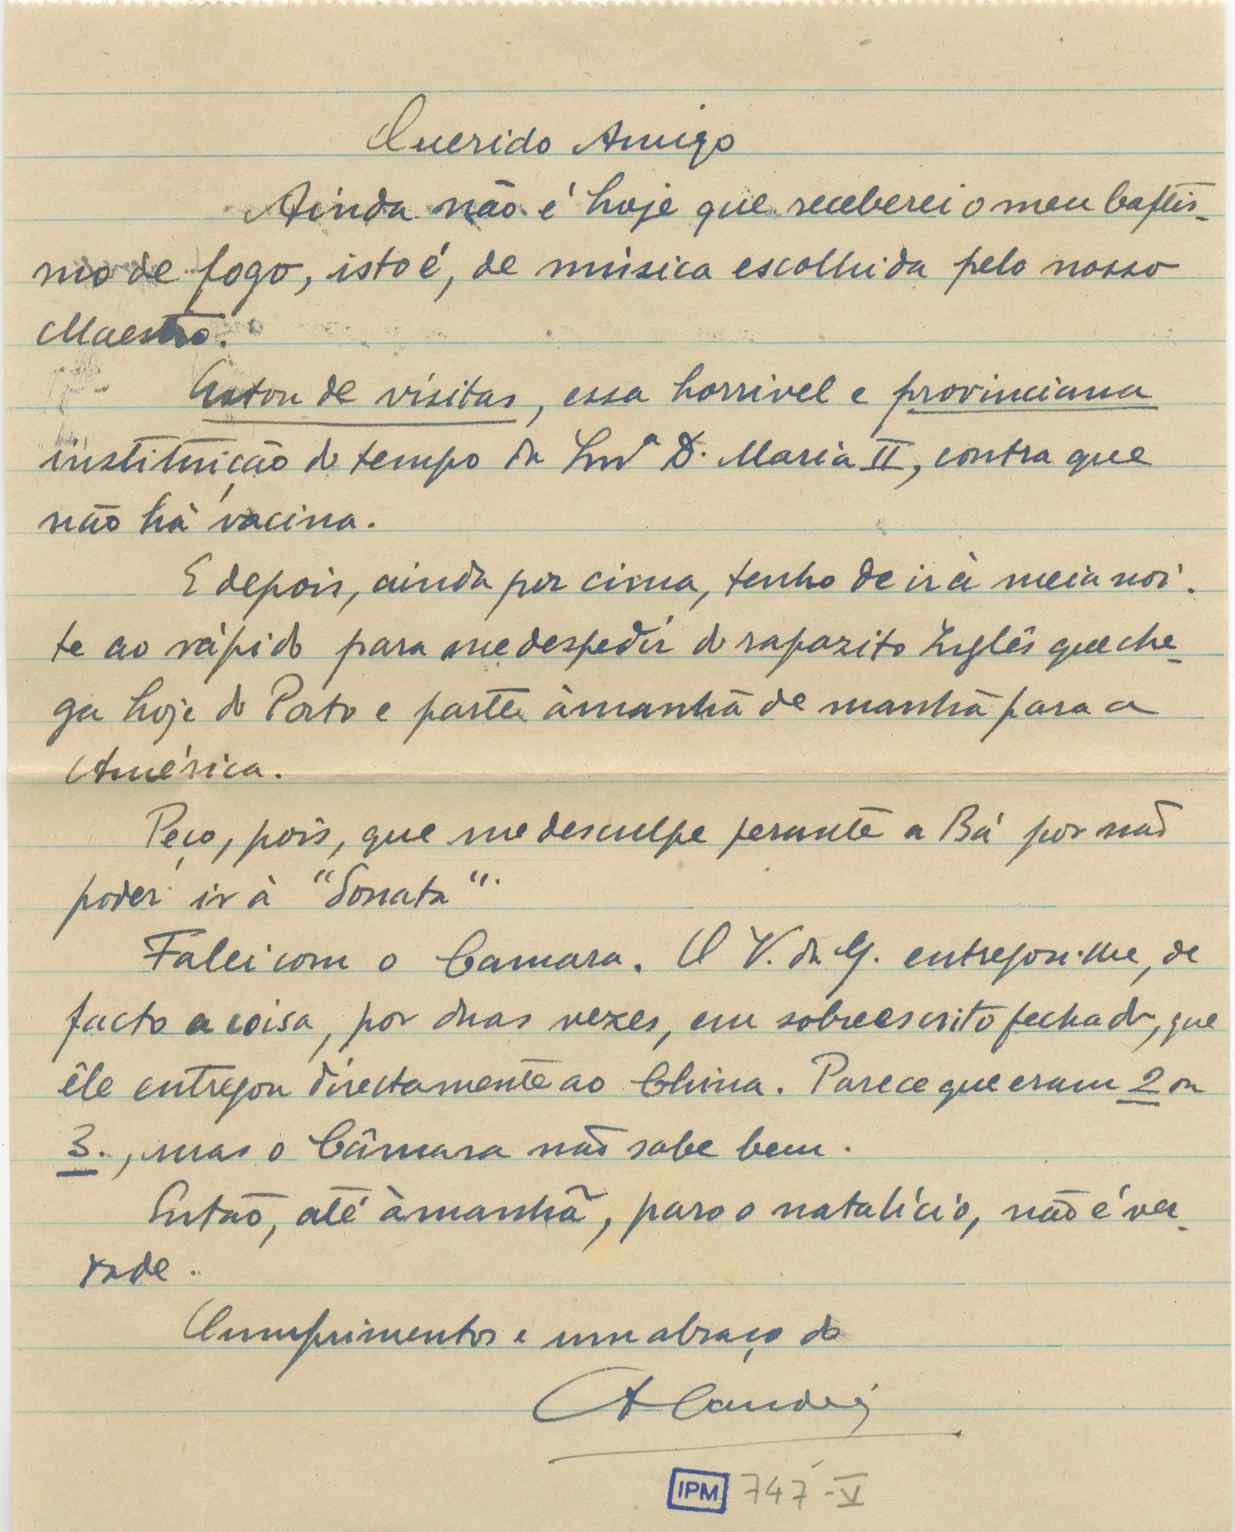 Querido Amigo
Ainda não é hoje que receberei o meu baptis-
mo de fogo, isto é, de música escolhida pelo nosso
Maestro.
Estou de visitas, essa horrivel e provinciana
instituição do tempo da Snrª D. Maria II, contra que
não há vacina.
E depois, ainda por cima, tenho de ir à meia noi-
te ao rápido para me despedir do rapazito Inglês que che-
ga hoje do Porto e parte àmanhã de manhã para a
América.
Peço, pois, que me desculpe perante a Bá por não
poder ir à "Sonata".
Falei com o Camara. O V. da G. entregou-lhe, de
facto a coisa, por duas vezes, em sobreescrito fechado, que
êle entregou directamente ao China. Parece que eram 2 ou
3., mas o Câmara não sabe bem.
Então, até àmanhã, para o natalício, não é ver-
dade.
Cumprimentos e um abraço do
A
IPM 747-V